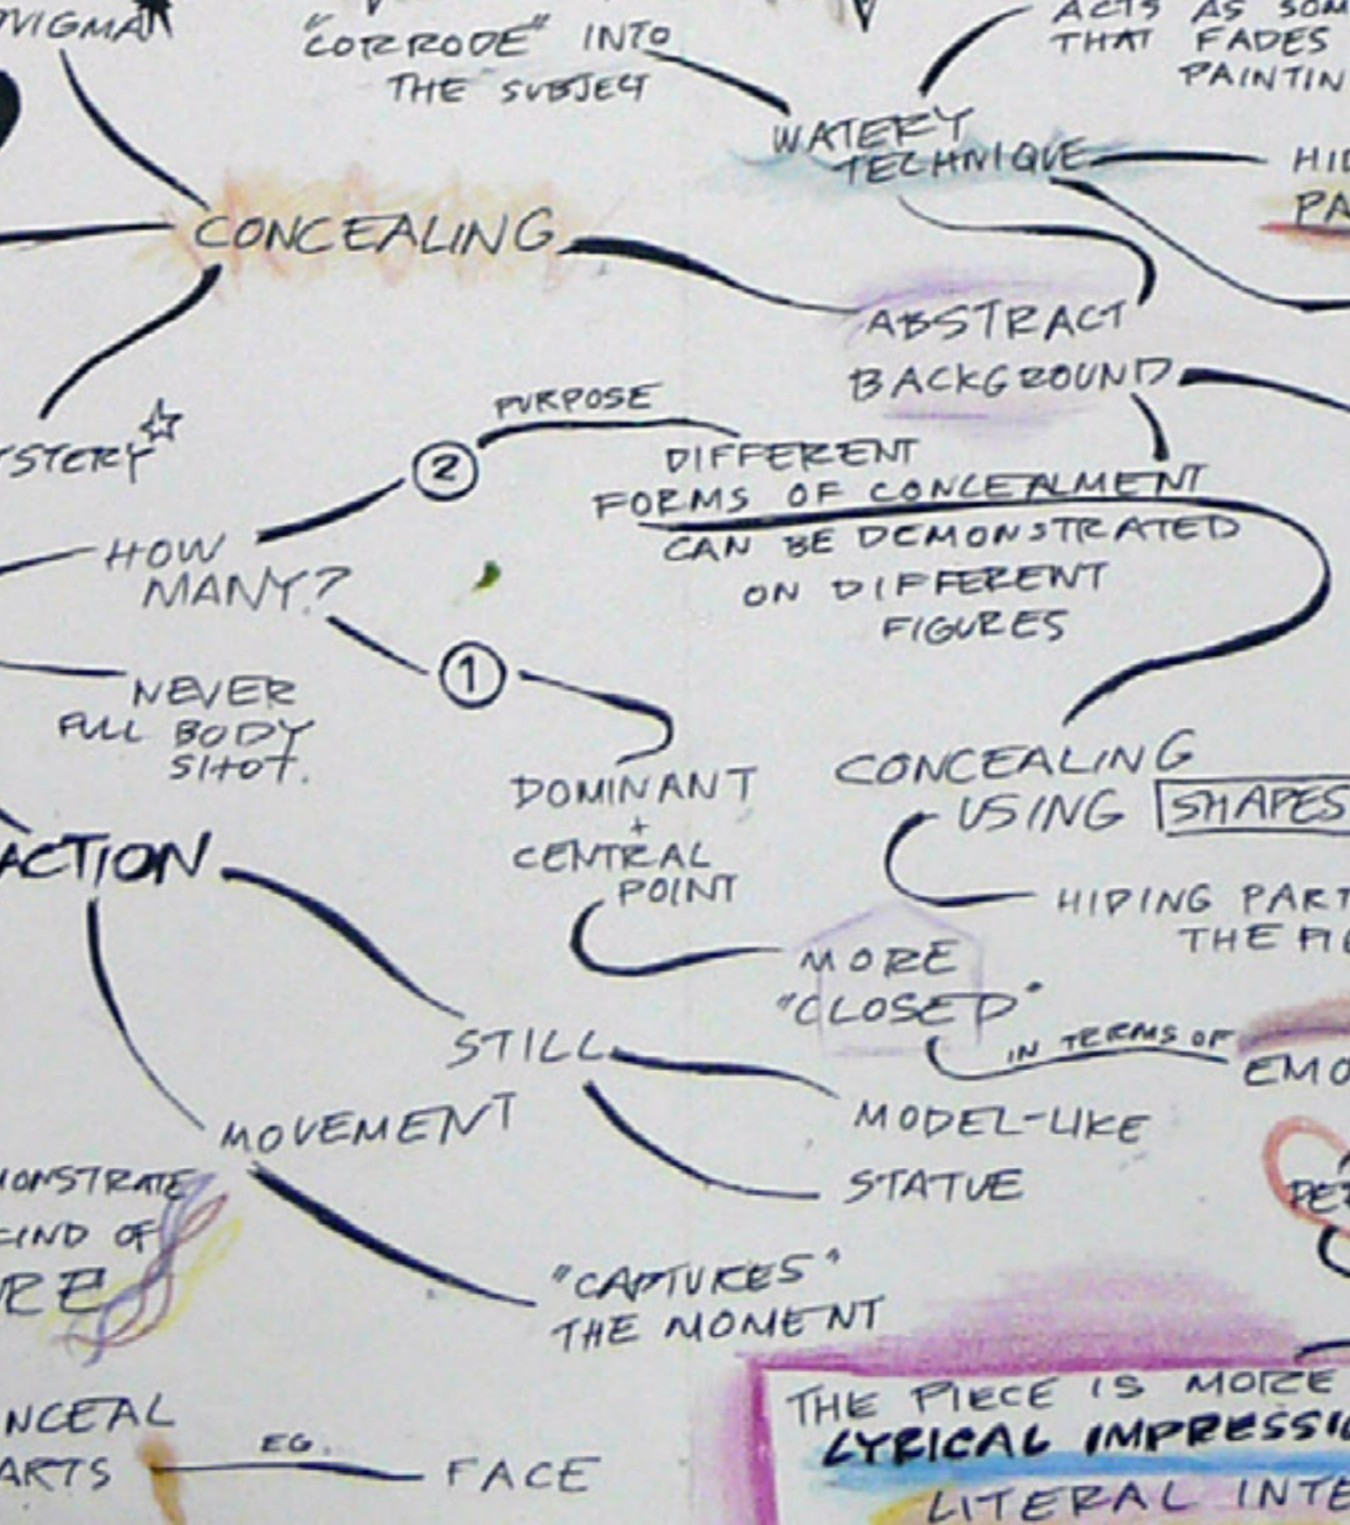 "CORRODE" INTO
THE SUBJECT
ACTS AS
THAT FADES
WATERY
TECHNIQUE
CONCEALING
ABSTRACT
BACKGROUND
PURPOSE
2
DIFFERENT
FORMS OF CONCEALMENT
CAN BE DEMONSTRATED
ON DIFFERENT
FIGURES
HOW
MANY?
1
NEVER
FULL BODY
SHOT.
DOMINANT
+
CENTRAL
POINT
CONCEALING
USING SHAPES
HIDING PART
THE
ACTION
MORE
"CLOSED"
IN TERMS OF
STILL
MODEL-LIKE
STATUE
MOVEMENT
"CAPTURES"
THE MOMENT
OF
EG.
FACE
THE PIECE IS MORE
LYRICAL
LITERAL